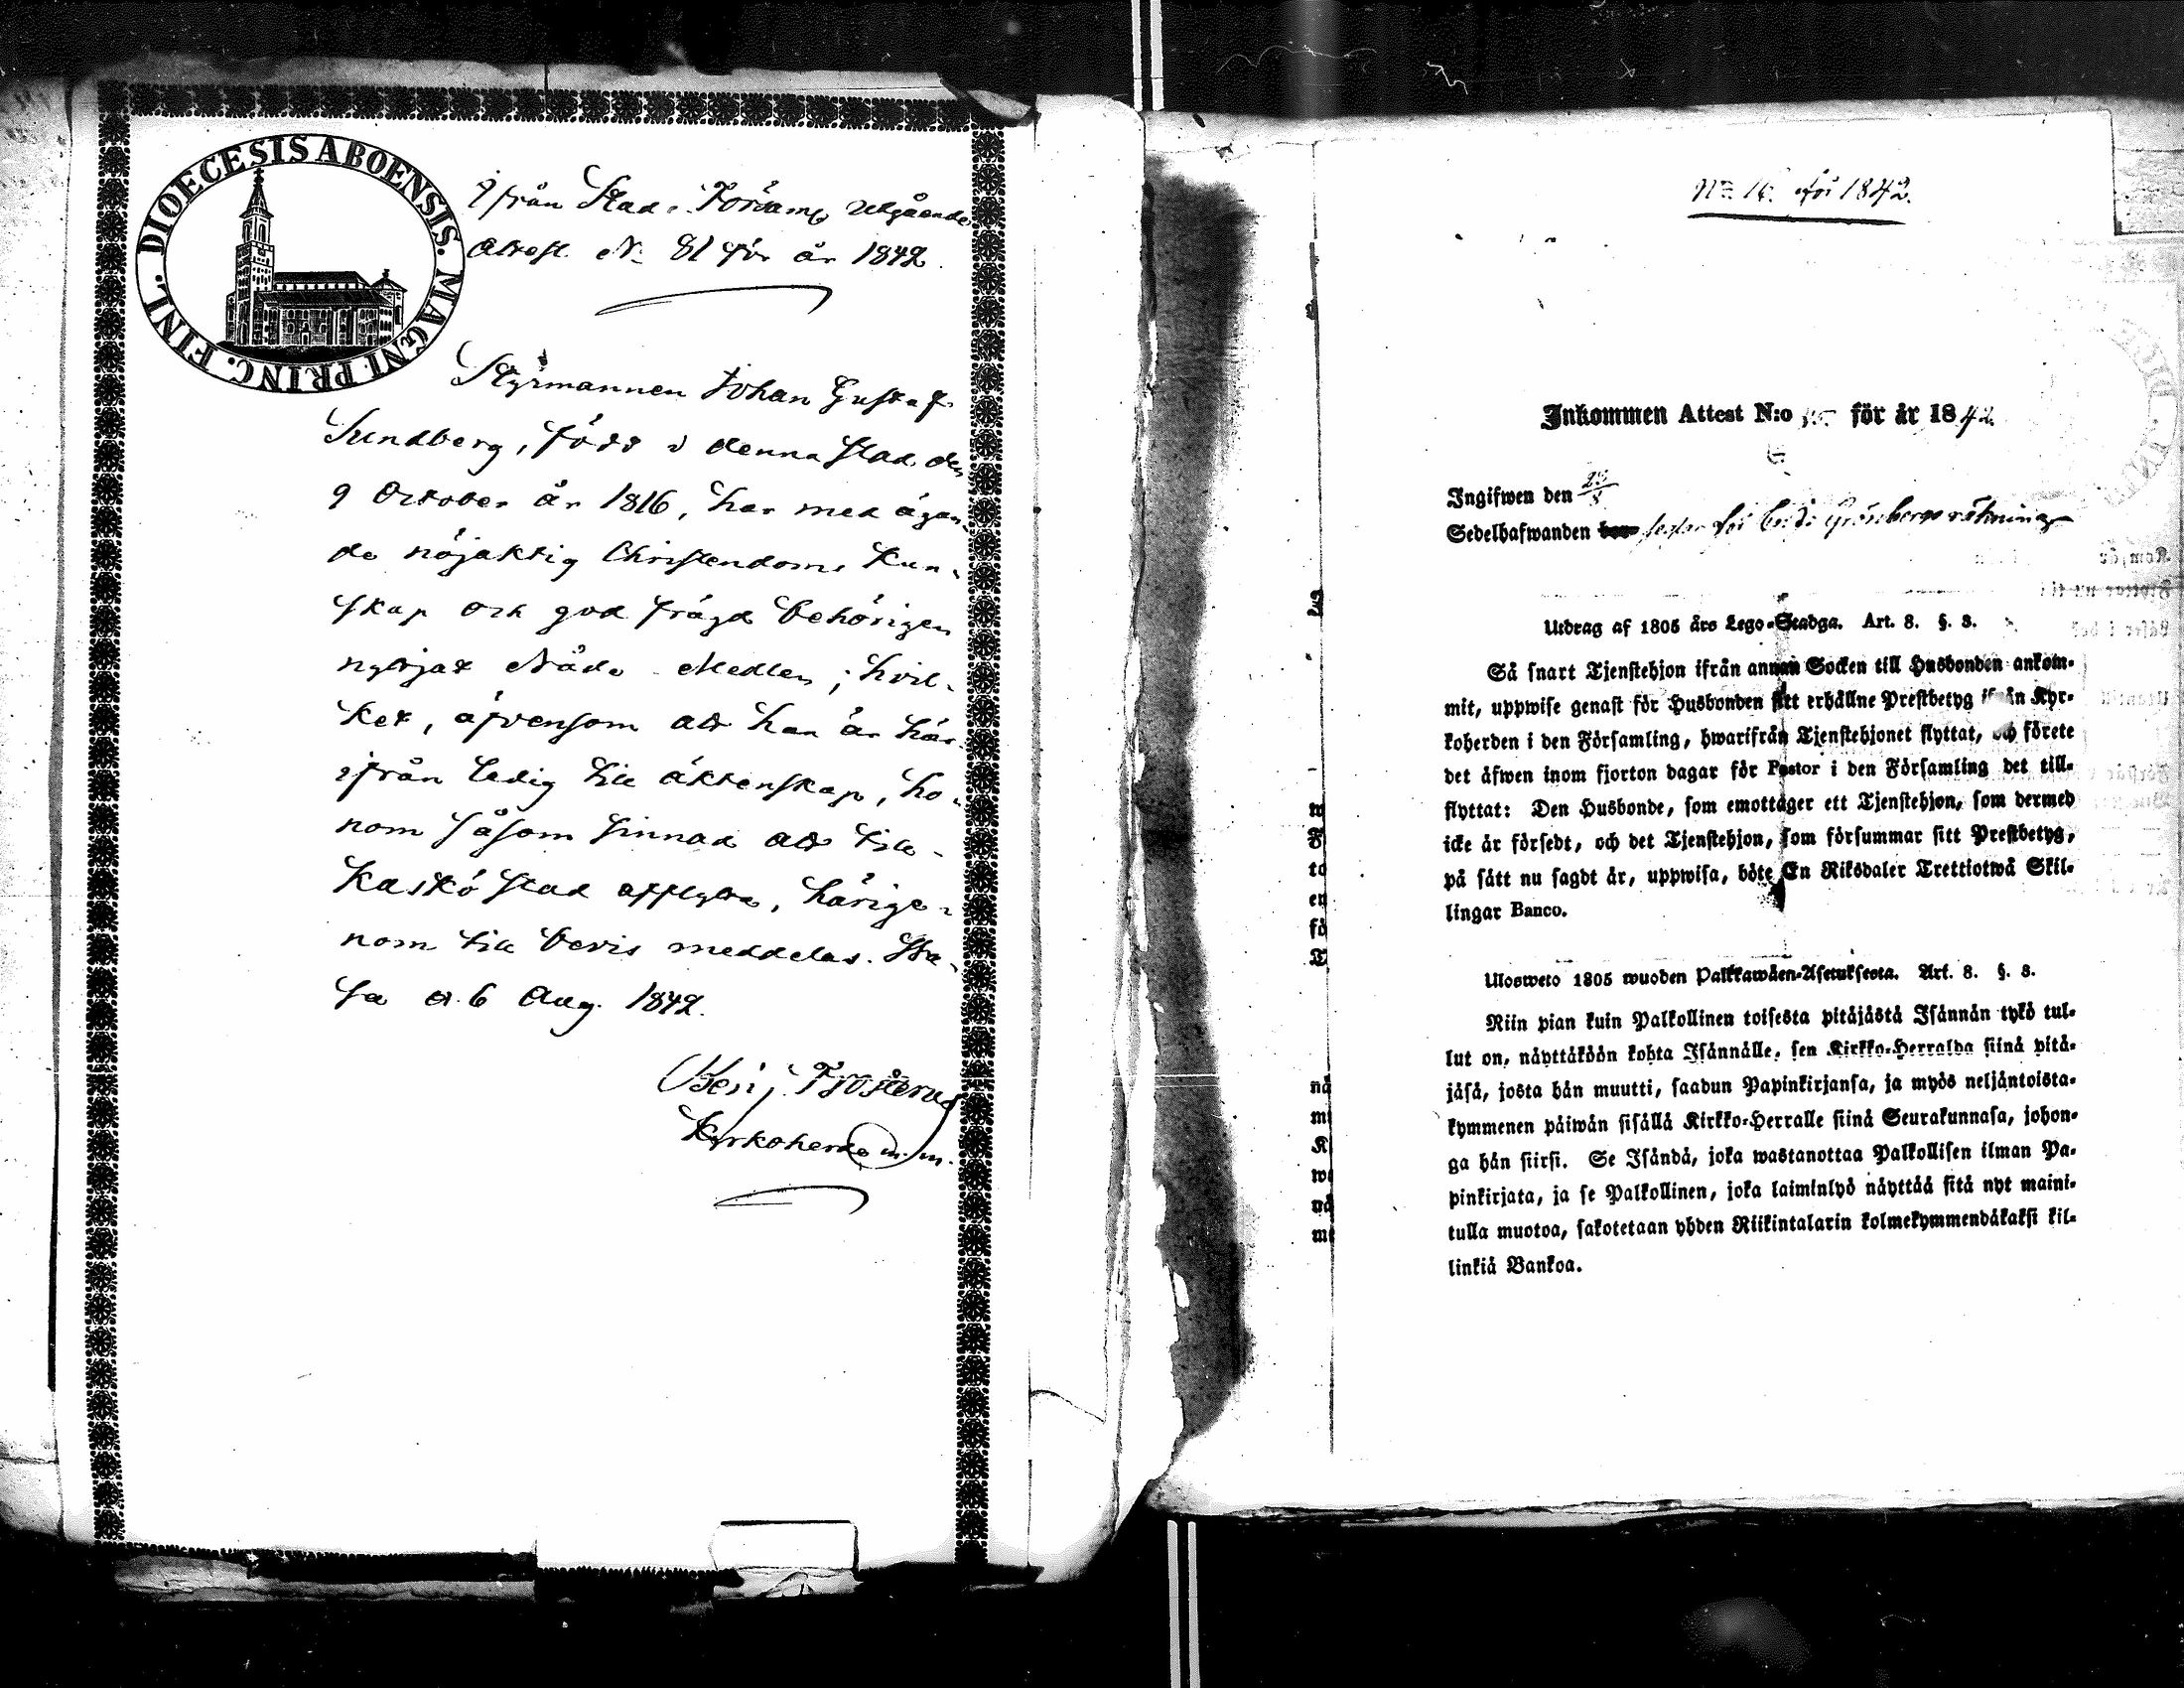 DIOECESIS ABOENSIS. MAGNI PRINC. FINL.
Ifrån Stads Församg Utgående
Attest N: 81 för år 1842.
Styrmannen Johan Gustaf
Sundberg, född i denna Stad den
9 October år 1816, har med ägan-
de nöjaktig Christendoms Kun-
skap och god frägd behörigen
nyttjat Nåde Medlen; hvil-
ket, äfvensom att han är här-
ifrån ledig till äktenskap, ho-
nom såsom sinnad att till
Kaskö Stad afflytta, härige-
nom till bevis meddelas. Wa-
sa d. 6 Aug. 1842.
Benj. Frosterus
Kyrkoherde m. m.
No 16. för 1842.
Inkommen Attest N:o för år 1842.
Ingifwen den
Sedelhafwanden Grönbergs räkning
Utdrag af 1805 års Lego-Stadga. Art. 8. §. 3.
Så snart Tjenstehjon ifrån annan Socken till Husbonden ankom-
mit, uppwise genast för Husbonden sitt erhållne Prestbetyg ifrån Kyr-
koherden i den Församling, hwarifrån Tjenstehjonet flyttat, och förete
det äfwen inom fjorton dagar för Pastor i den Församling det till-
flyttat: Den Husbonde, som emottager ett Tjenstehjon, som dermed
icke är försedt, och det Tjenstehjon, som försummar sitt Prestbetyg,
på sätt nu sagdt är, uppwisa, böte En Riksdaler Trettiotwå Skil-
lingar Banco.
Ulosweto 1805 wuoden Palkkawäen-Asetuksesta. Art. 8. §. 3.
Niin pian kuin Palkollinen toisesta pitäjästä Isännän tykö tul-
lut on, näyttäköön kohta Isännälle, sen Kirkko-Herralda siinä pitä-
jäsä, josta hän muutti, saadun Papinkirjansa, ja myös neljäntoista-
kymmenen päiwän sisällä Kirkko-Herralle siinä Seurakunnasa, johon-
ga hän siirsi. Se Isändä, joka wastanottaa Palkollisen ilman Pa-
pinkirjata, ja se Palkollinen, joka laiminlyö näyttää sitä nyt maini-
tulla muotoa, sakotetaan yhden Riikintalarin kolmekymmendäkaksi kil-
linkiä Bankoa.